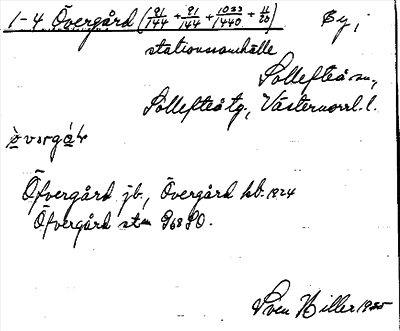 1-4 Övergård (91/144 + 91/144 + 1033/1440 + 11/20) By,
stationssamhälle
Sollefteå sn.,
Sollefteå tg., Västernorrl. l.
Öfvergård jb., Övergård kb. 1924
Öfvergård stm G68SO.
Sven Hiller 1935